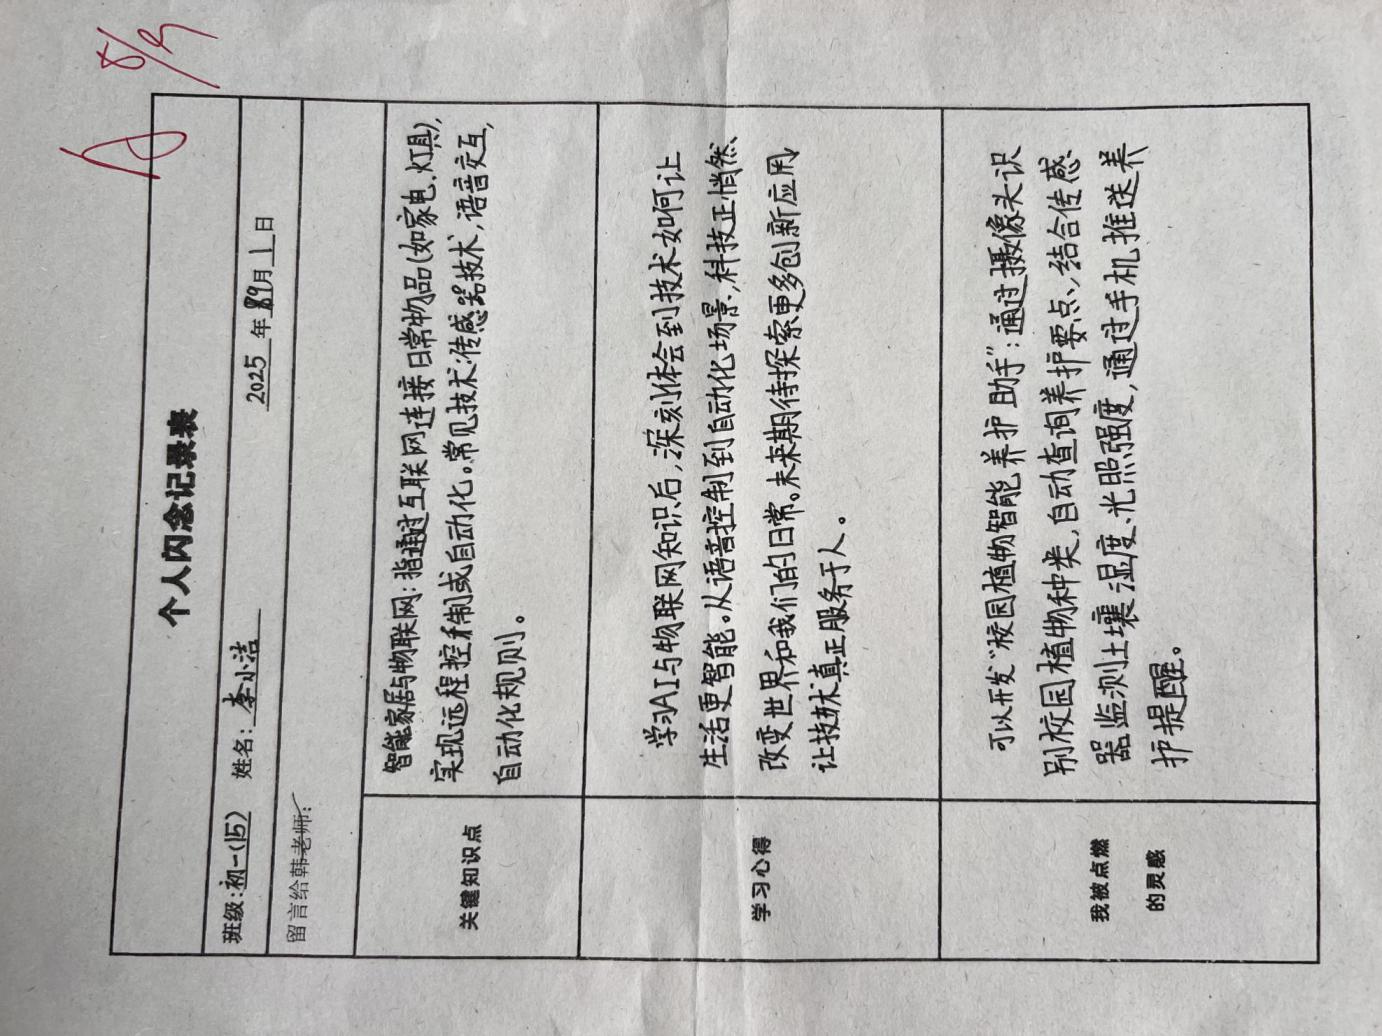 A
8/9
个人闪念记录表
班级:初一(15) 姓名:李小洁 2025年9月1日
留言给韩老师:
关键知识点
智能家居与物联网:指通过互联网连接日常物品(如家电、灯具),
实现远程控制或自动化。常见技术:传感器技术,语音交互,
自动化规则。
学习心得
学习AI与物联网知识后,深刻体会到技术如何让
生活更智能。从语音控制到自动化场景,科技正悄然
改变世界和我们的日常。未来期待探索更多创新应用,
让技术真正服务于人。
我被点燃
的灵感
可以开发“校园植物智能养护助手”:通过摄像头识
别校园植物种类,自动查询养护要点、结合传感
器监测土壤湿度、光照强度,通过手机推送养
护提醒。